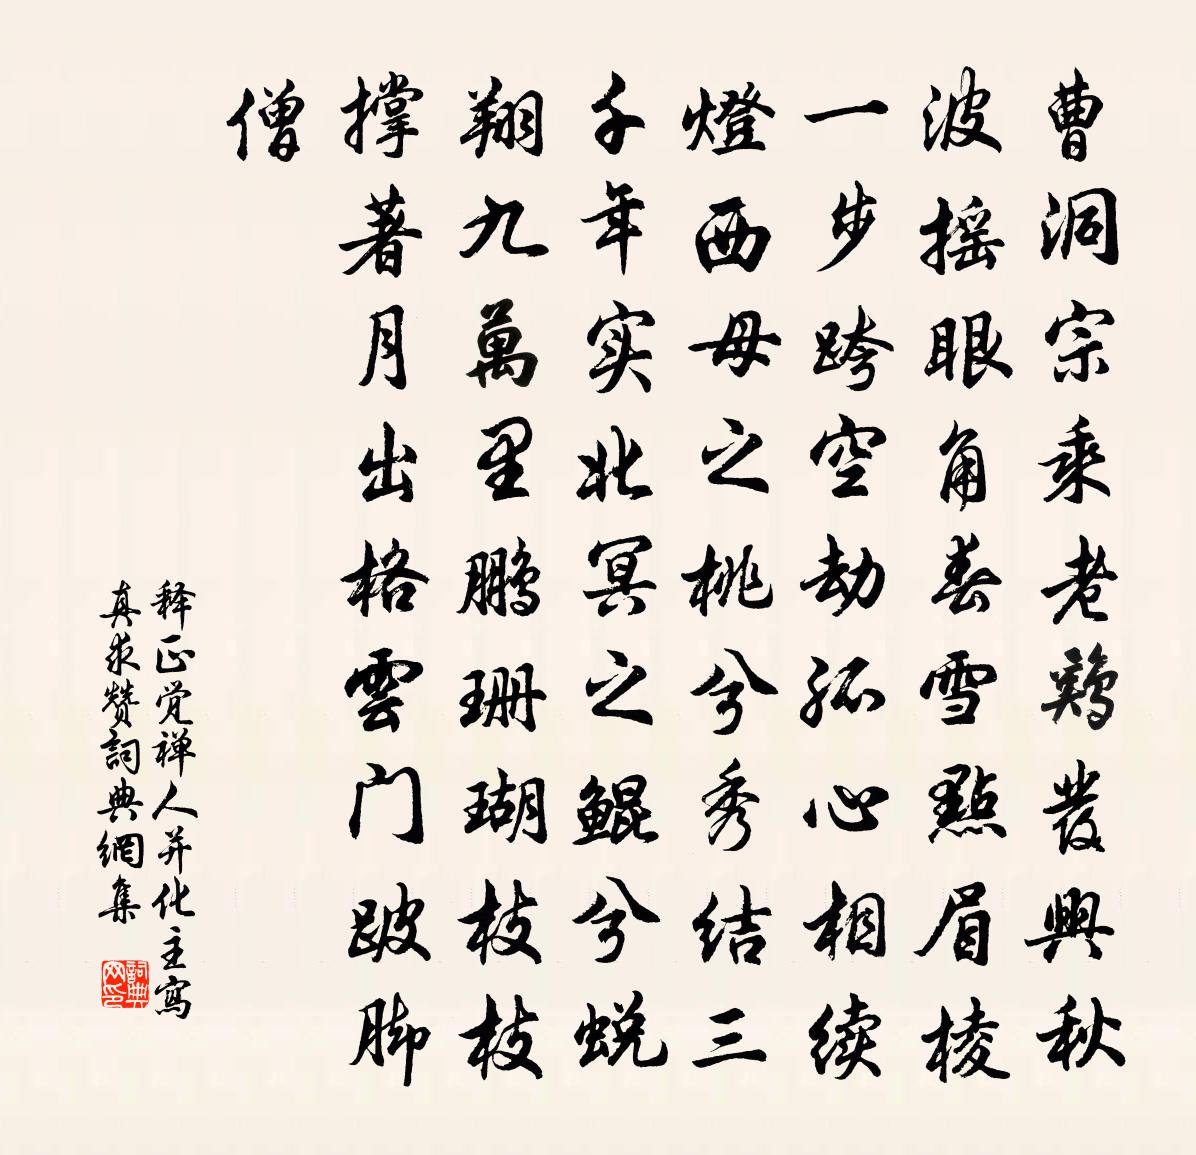 曹洞宗乘老鷄發興秋
波摇眼角春雪點眉棱
一步跨空劫孤心相续
燈西母之桃兮秀结三
千年实北冥之鲲兮蜕
翔九萬里鹏珊瑚枝枝
撑著月出格雲门跛脚
僧
释正觉禅人并化主寫
真求赞詞典網集
詞典网印